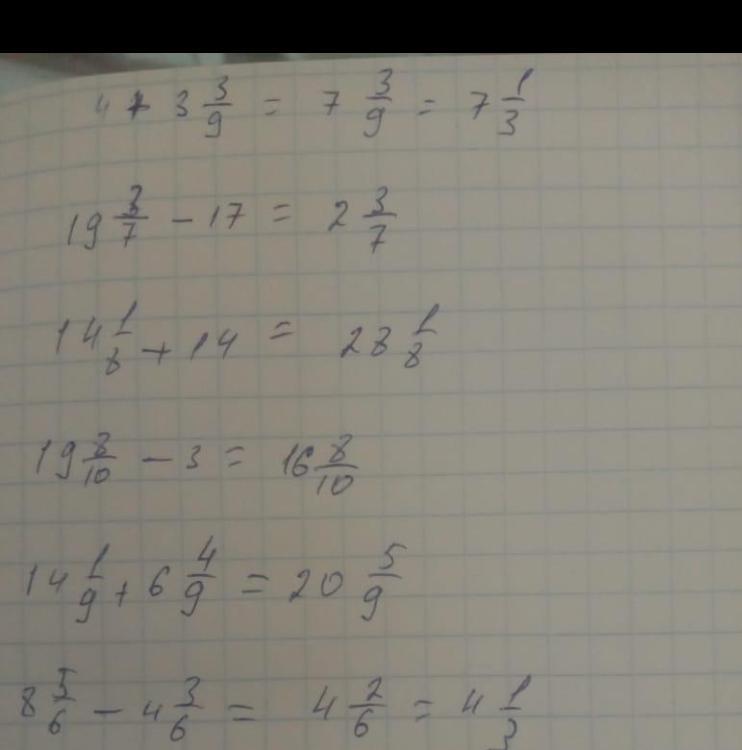 4 + 3 3/9 = 7 3/9 = 7 1/3
19 3/7 - 17 = 2 3/7
14 1/8 + 14 = 28 1/8
19 8/10 - 3 = 16 8/10
14 1/9 + 6 4/9 = 20 5/9
8 5/6 - 4 3/6 = 4 2/6 = 4 1/3